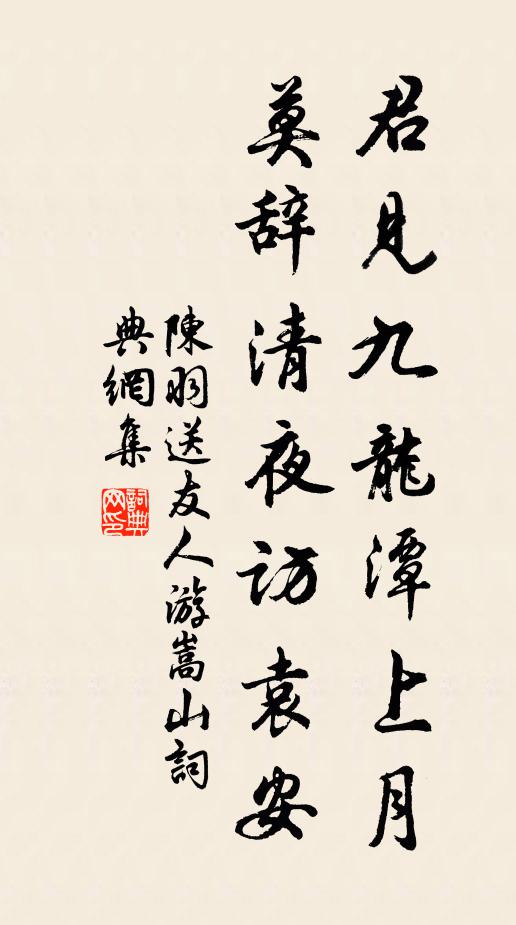 君見九龍潭上月
莫辞清夜訪袁安
陳羽送友人游嵩山詞
典網集
詞典网印